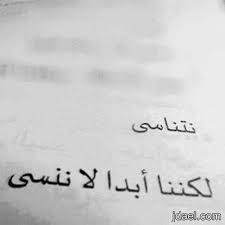 نتناسى
لكننا أبدا لا ننسى
jdael.com